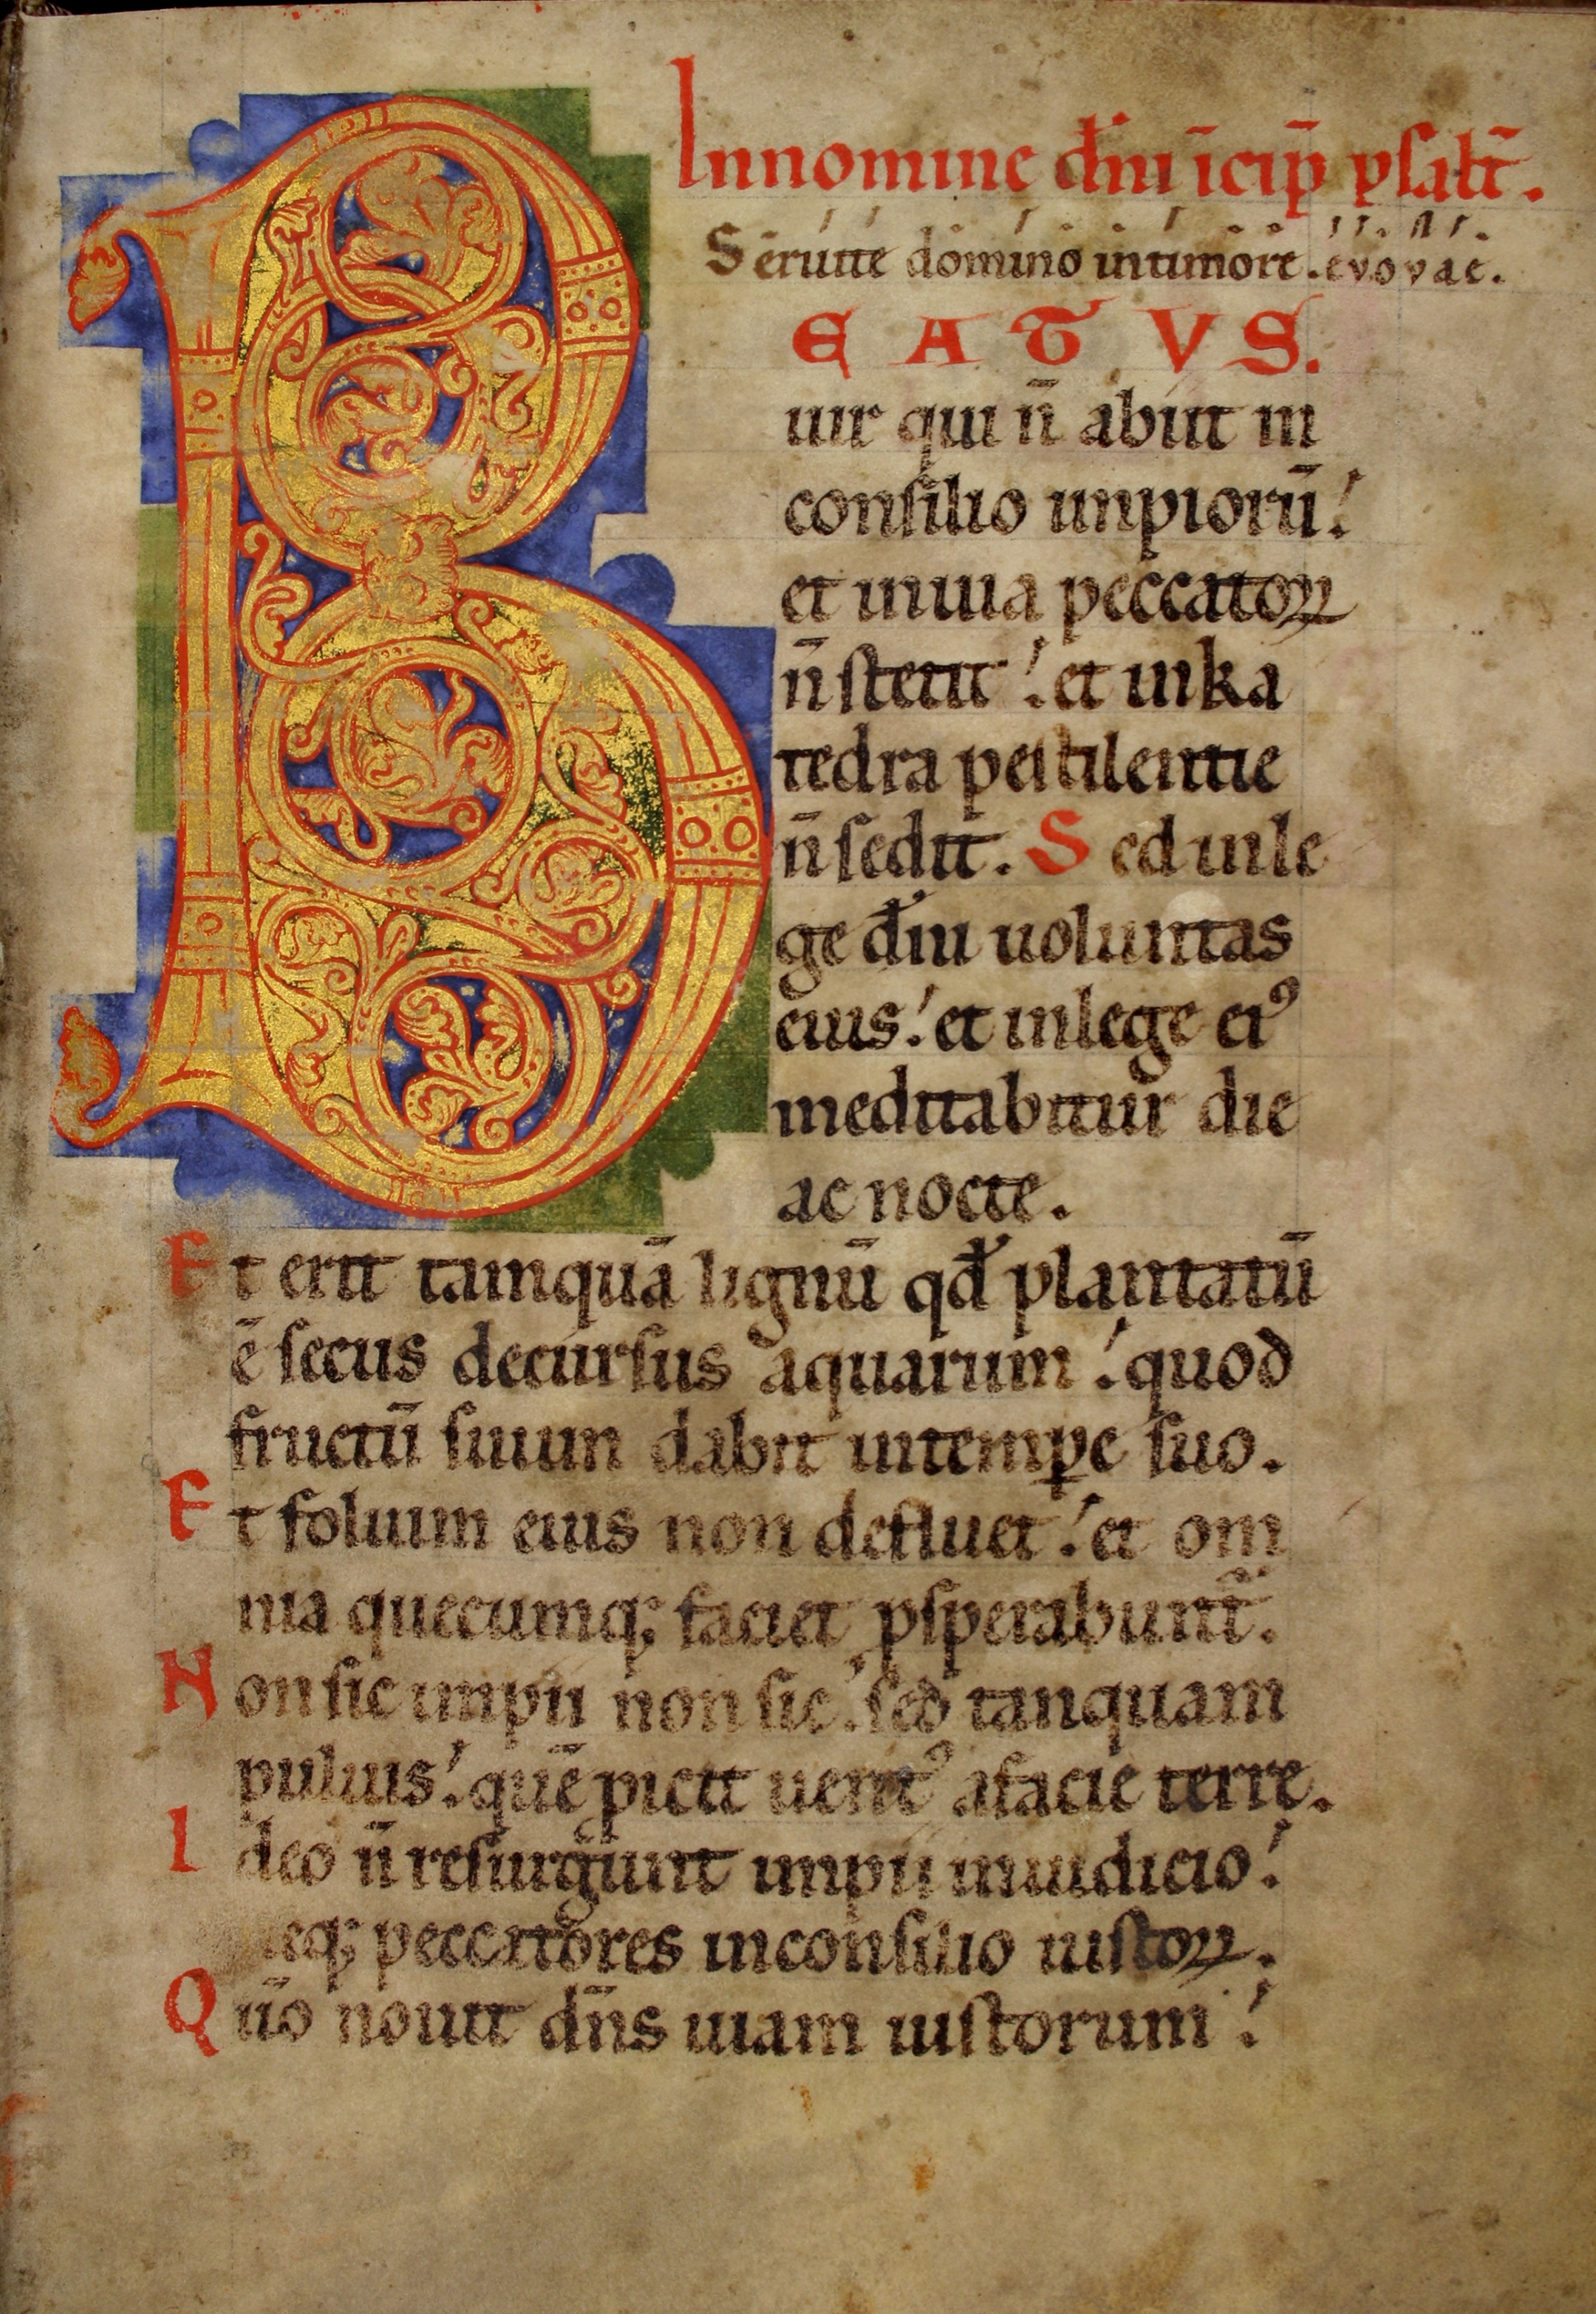 In nomine dn̄i īcip̄ psalt̄.
Seruite domino in timore. evovae.
BEATVS.
uir qui n̄ abiit in
consilio impiorū!
et in uia peccatoꝝ
n̄ stetit! et in ka
tedra pestilentie
n̄ sedit. Sed in le
ge dn̄i uoluntas
eius! et in lege ei⁹
meditabitur die
ac nocte.
Et erit tamquā lignū qd̄ plantatū
ē secus decursus aquarum! quod
fructū suum dabit in temꝑe suo.
Et folium eius non defluet! et om
nia quecumq; faciet ꝓsperabunt̄.
Non sic impii non sic! sed tanquam
puluis! quē ꝓicit uent⁹ a facie terre.
Ideo n̄ resurgunt impii in iudicio!
neq; peccatores in consilio iustoꝝ.
Qūo nouit dn̄s uiam iustorum!